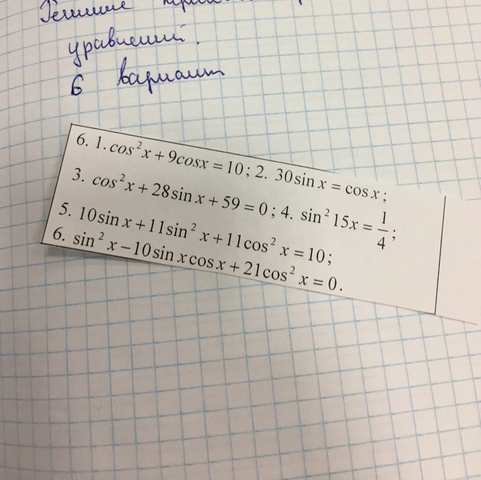 Решение
уравнений.
6 вариант
6. 1. cos²x + 9cosx = 10; 2. 30 sin x = cos x;
3. cos²x + 28 sin x + 59 = 0; 4. sin² 15x = 1/4;
5. 10 sin x + 11 sin² x + 11 cos² x = 10;
6. sin² x − 10 sin x cos x + 21 cos² x = 0.